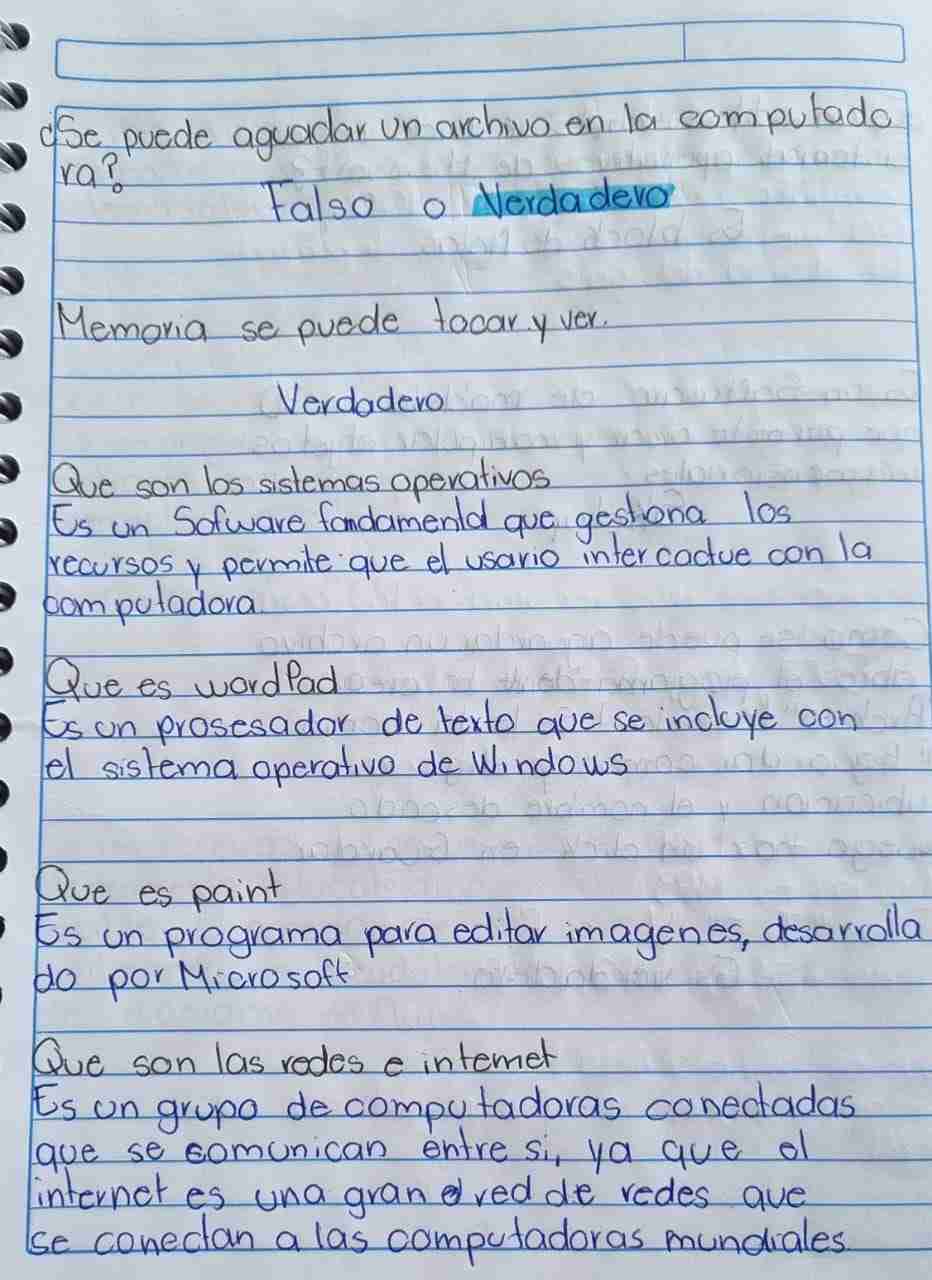 ¿Se puede aguadar un archivo en la computado
ra?
Falso o Verdadero
Memoria se puede tocar y ver.
Verdadero
Que son los sistemas operativos
Es un Sofware fondamental que gestiona los
recursos y permite que el usario intercactue con la
computadora
Que es wordPad
Es un prosesador de texto que se incluye con
el sistema operativo de Windows
Que es paint
Es un programa para editar imagenes, desarrolla
do por Microsoft
Que son las redes e internet
Es un grupo de computadoras conectadas
que se comunican entre si, ya que el
internet es una gran red de redes que
se conectan a las computadoras mundiales.